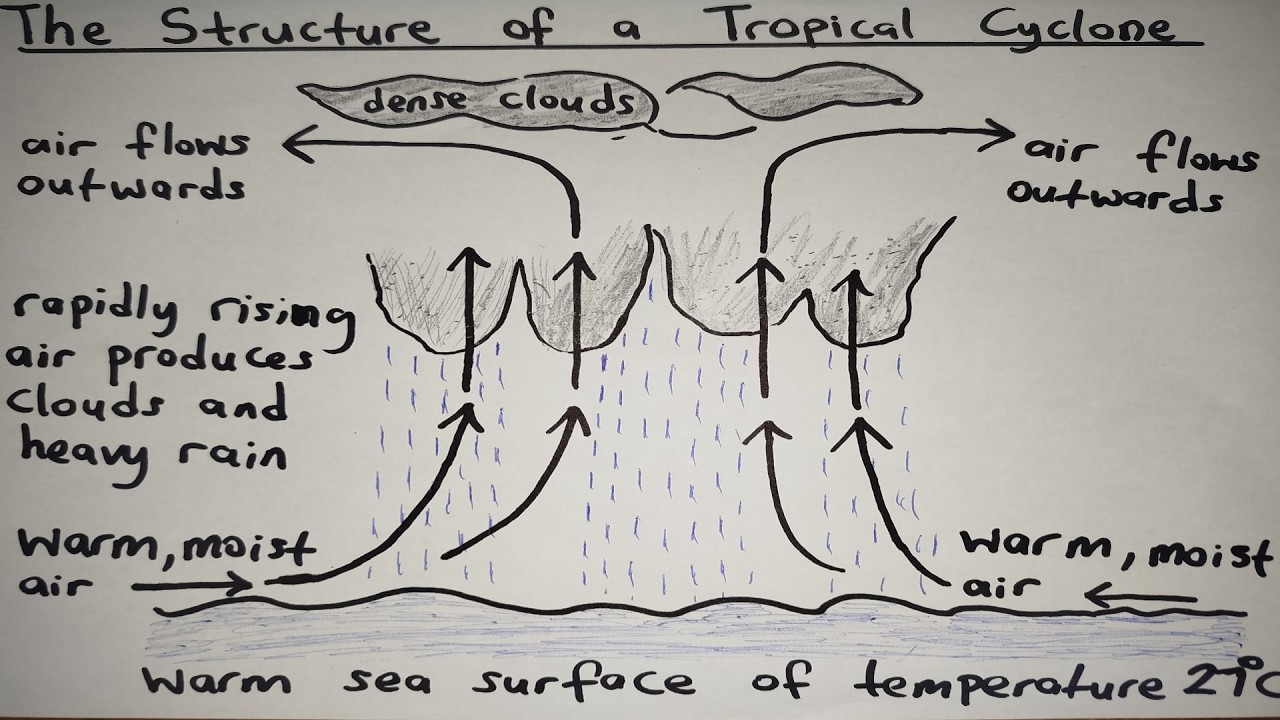 The Structure of a Tropical Cyclone
dense clouds
air flows
outwards
air flows
outwards
rapidly rising
air produces
clouds and
heavy rain
warm, moist
air
warm, moist
air
warm sea surface of temperature 27°C